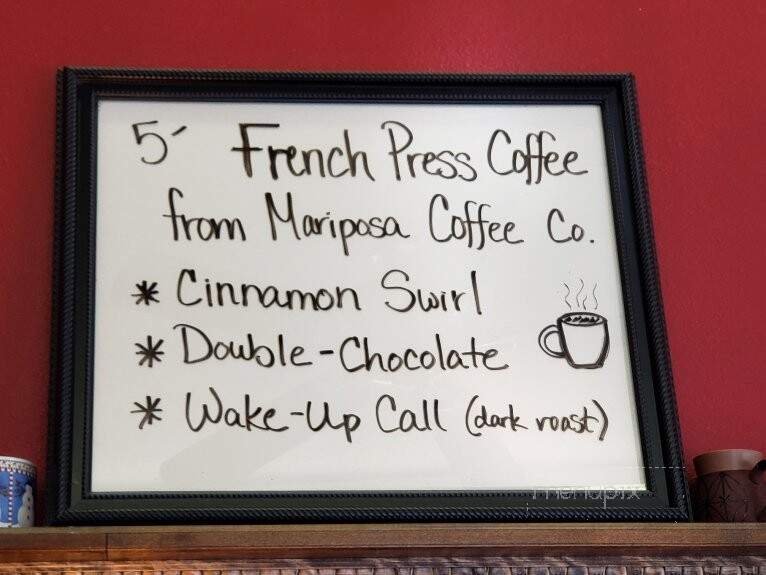 5´ French Press Coffee
from Mariposa Coffee Co.
* Cinnamon Swirl
* Double-Chocolate
* Wake-Up Call (dark roast)